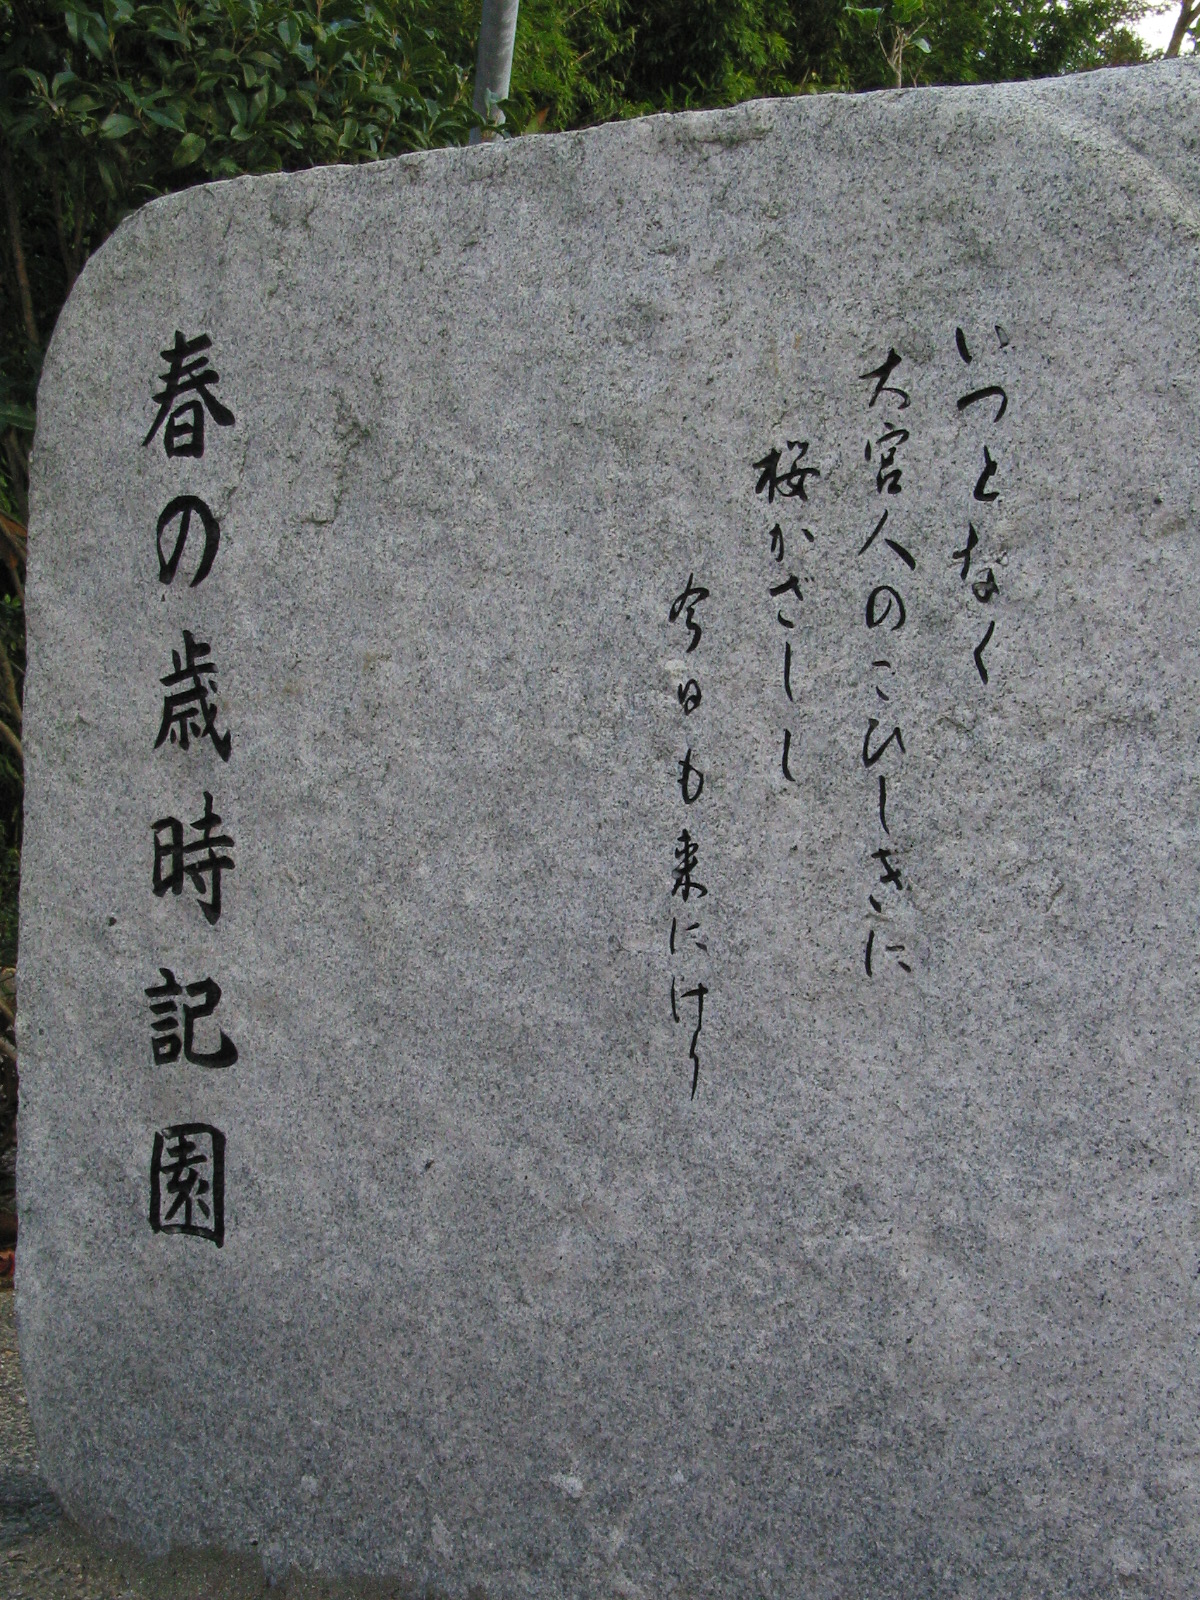 いつとなく
大宮人のこひしきに
桜かざしし
今日も来にけり
春の歳時記園